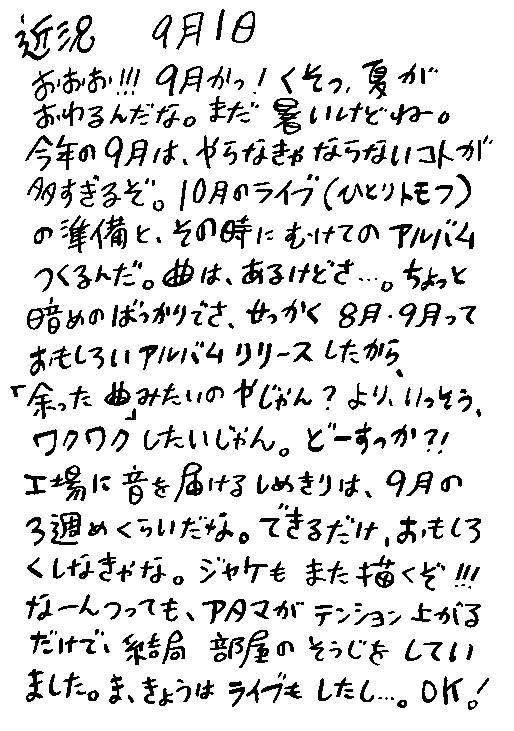 近況 9月1日
おおお!!! 9月かっ! くそっ、夏が
おわるんだな。まだ 暑いけどねー。
今年の9月は、やらなきゃならないコトが
多すぎるぞ。10月のライブ(ひとりトモフ)
の準備と、その時にむけてのアルバム
つくるんだ。曲は、あるけどさ…。ちょっと
暗めのばっかりでさ、せっかく 8月・9月って
おもしろいアルバムリリースしたから、
「余った曲」みたいのやじゃん? より、いっそう、
ワクワクしたいじゃん。どーすっか?!
工場に音を届けるしめきりは、9月の
3週めくらいだな。できるだけ、おもしろ
くしなきゃな。ジャケもまた描くぞ!!!
なーんつっても、アタマがテンション上がる
だけで、結局 部屋のそうじをしてい
ました。ま、きょうはライブもしたし…。OK!